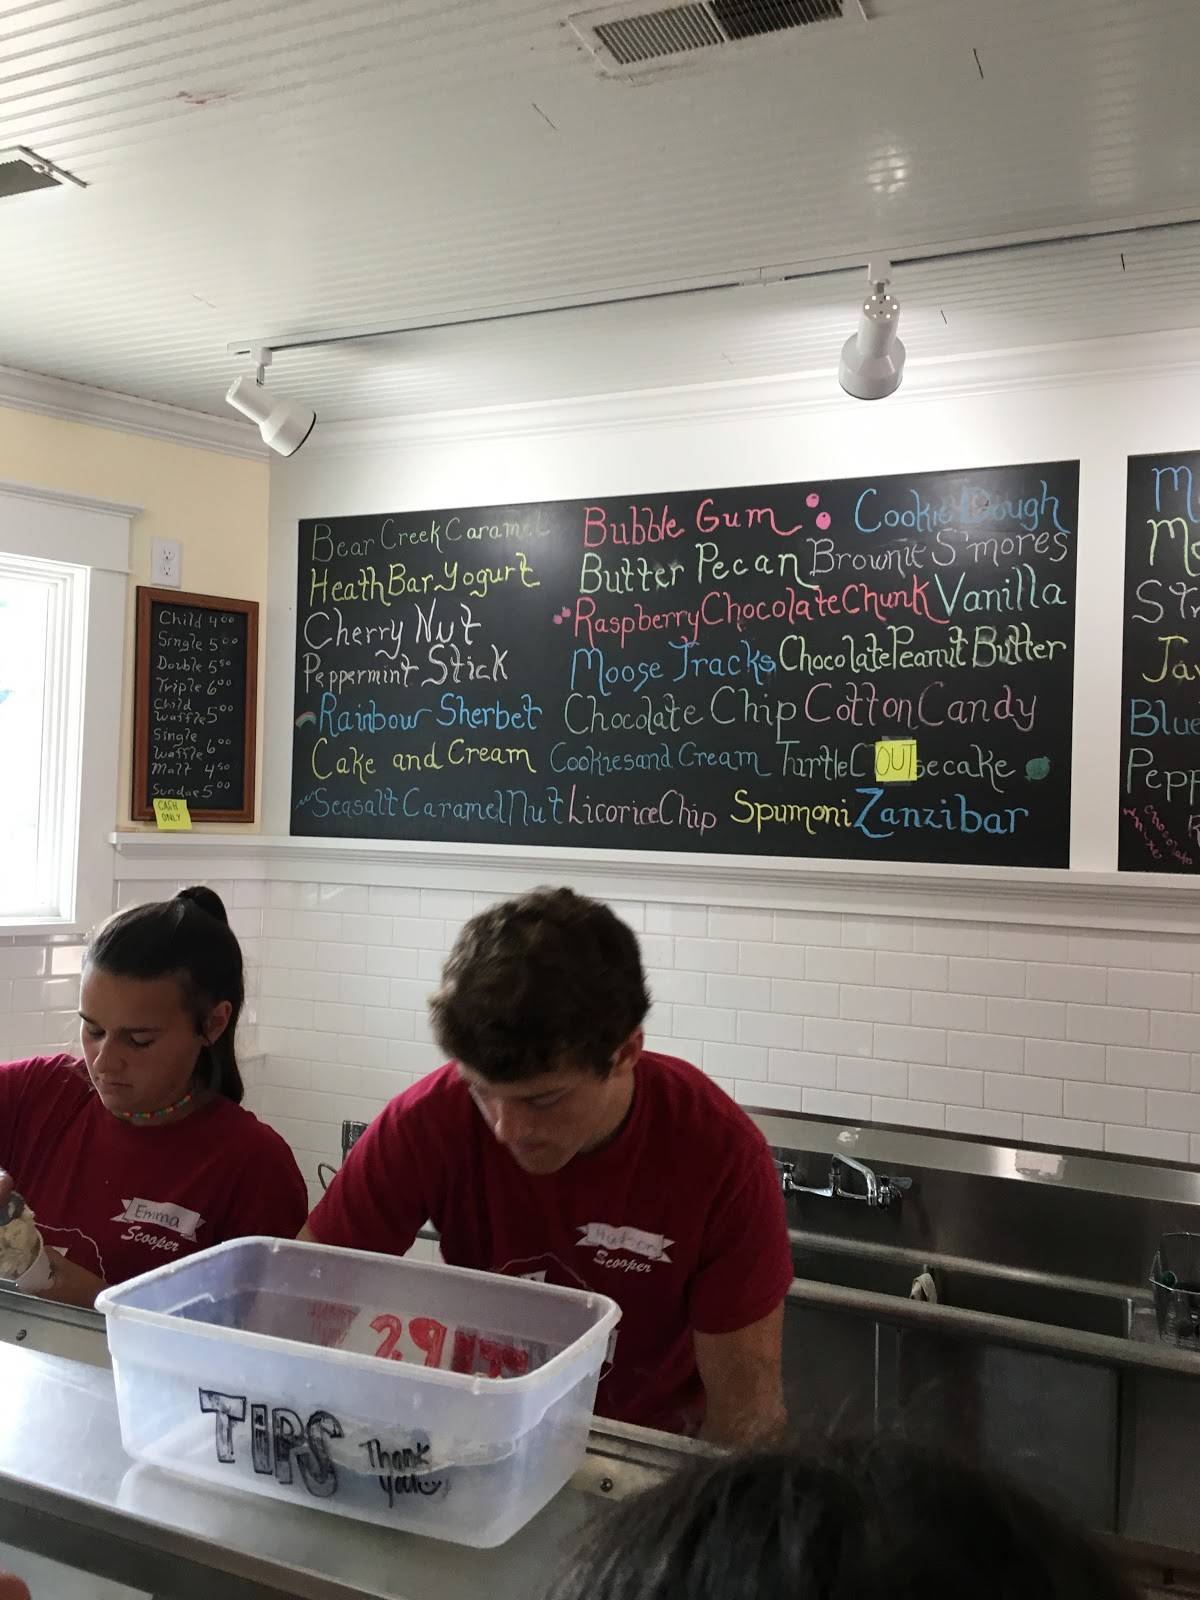 Bear Creek Caramel
Heath Bar Yogurt
Cherry Nut
Peppermint Stick
Rainbow Sherbet
Cake and Cream
Seasalt Caramel Nut
Bubble Gum Cookie Dough
Butter Pecan Brownie S'mores
Raspberry Chocolate Chunk Vanilla
Moose Tracks Chocolate Peanut Butter
Chocolate Chip Cotton Candy
Cookies and Cream Turtle C OUT secake
Licorice Chip Spumoni Zanzibar
Child 4.00
Single 5.00
Double 5.50
Triple 6.00
Child
Waffle 5.00
Single
Waffle 6.00
Malt 4.50
Sundae 5.00
CASH
ONLY
M
M
St
Ja
Blue
Pepp
White
Chocolate
Emma
Scooper
Hudson
Scooper
TIPS
Thank
you